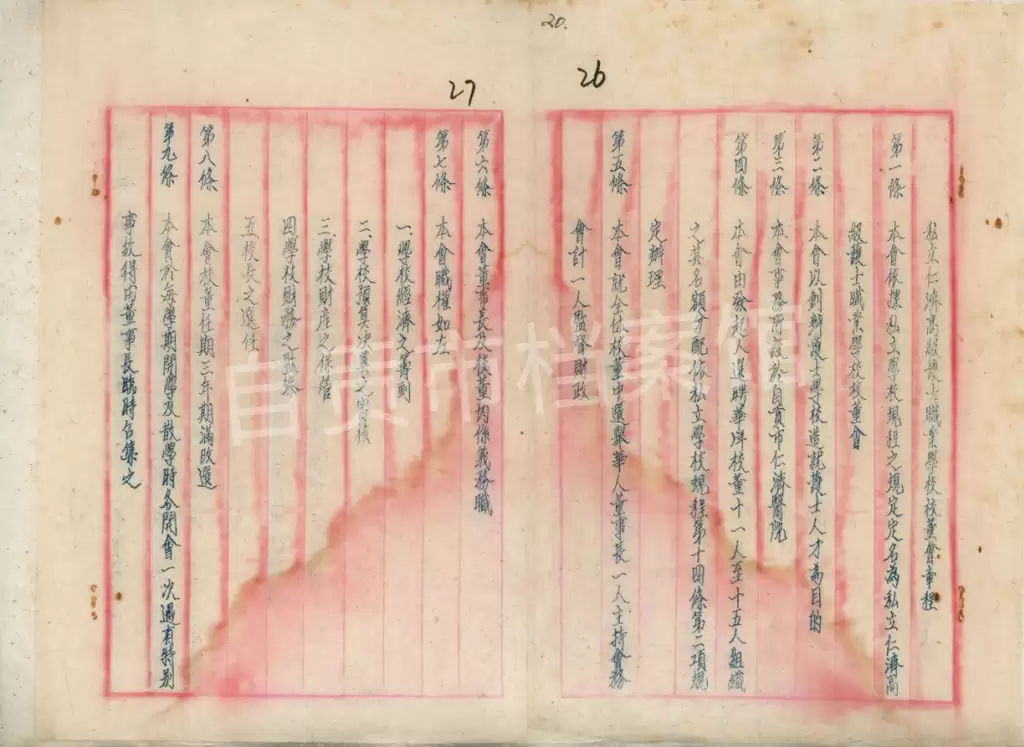 20.
26
私立仁濟高級護士職業學校校董會章程
第一條 本會依據私立學校規程之規定定名為私立仁濟高
級護士職業學校校董會
第二條 本會以創辦護士學校造就護士人才為目的
第三條 本會事務所設於自貢市仁濟醫院
第四條 本會由發起人選聘華洋校董十一人至十五人組織
之其名額分配依私立學校規程第十四條第二項規
定辦理
第五條 本會就全体校董中選舉華人董事長一人主持會務
會計一人監督財政
27
第六條 本會董事長及校董均係義務職
第七條 本會職權如左
一、學校經濟之籌劃
二、學校預算決算之審核
三學校財產之保管
四學校財務之監察
五校長之選任
第八條 本會校董任期三年期滿改選
第九條 本會於每學期開學及散學時各開會一次遇有特別
事故得由董事長臨時召集之
自贡市档案馆